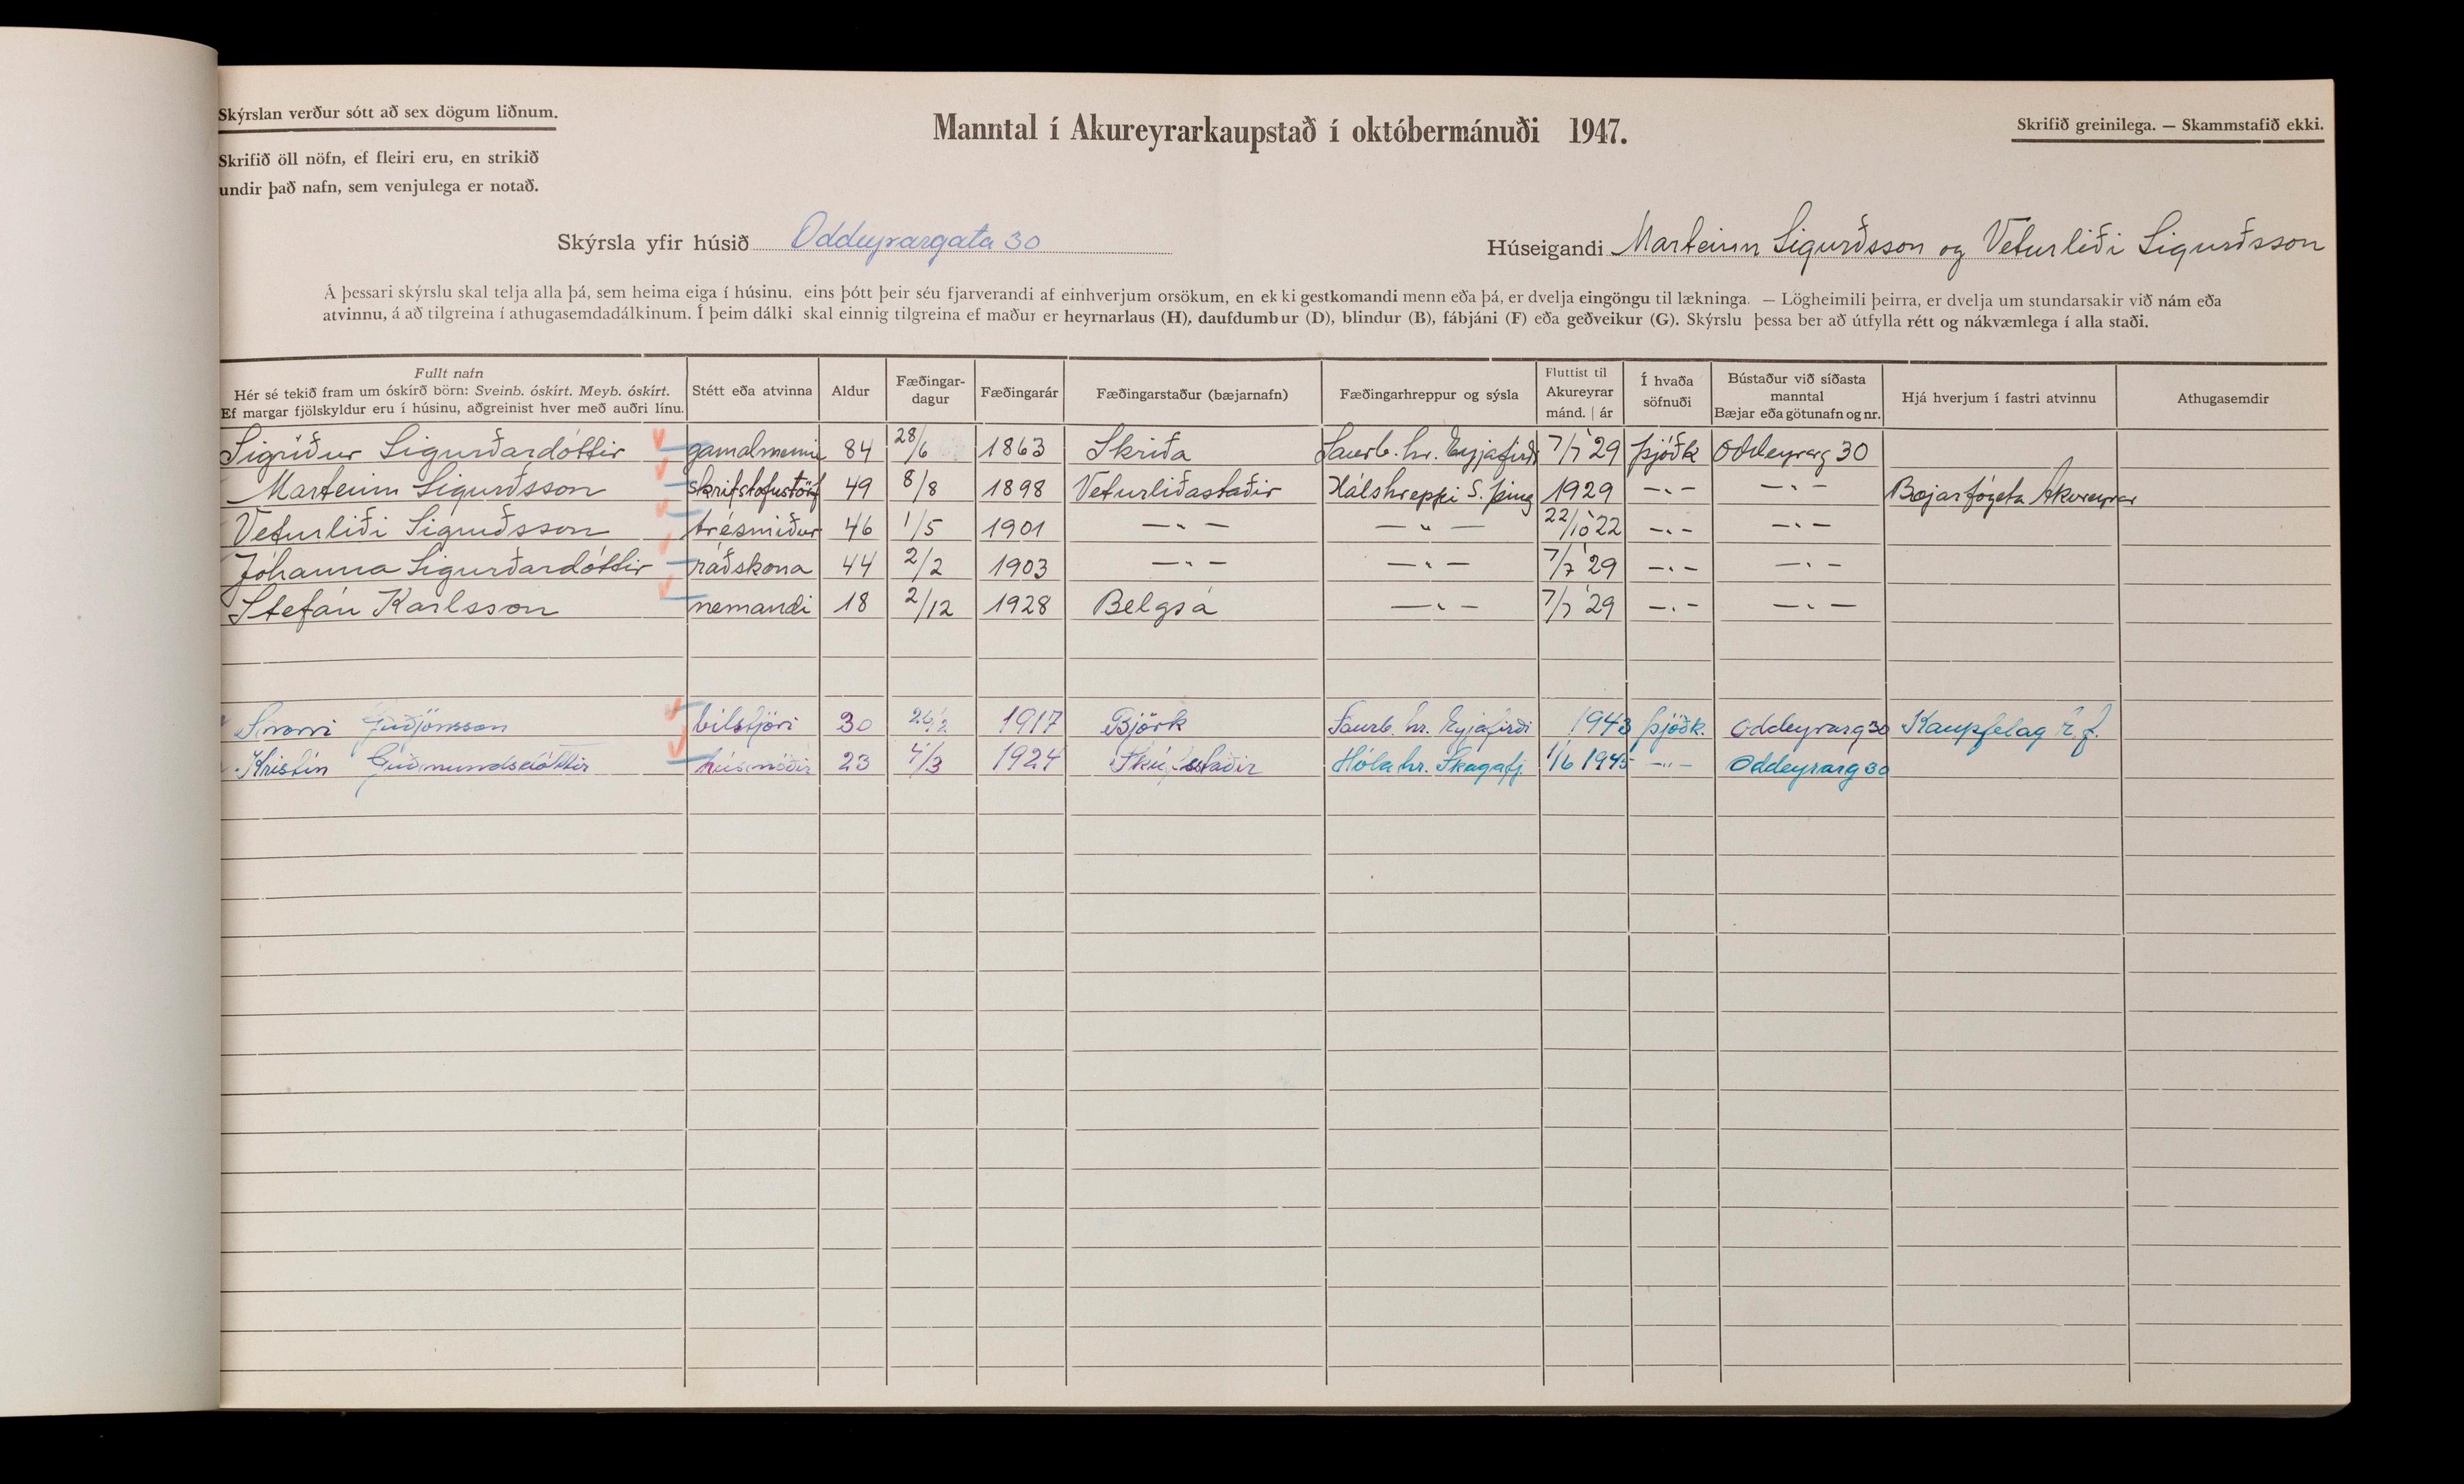 Skýrslan verður sótt að sex dögum liðnum.
Skrifið öll nöfn, ef fleiri eru, en strikið
undir það nafn, sem venjulega er notað.
Manntal í Akureyrarkaupstað í októbermánuði 1947.
Skrifið greinilega. — Skammstafið ekki.
Skýrsla yfir húsið Oddeyrargata 30
Húseigandi Marteinn Sigurðsson og Veturliði Sigurðsson
Á þessari skýrslu skal telja alla þá, sem heima eiga í húsinu, eins þótt þeir séu fjarverandi af einhverjum orsökum, en ekki gestkomandi menn eða þá, er dvelja eingöngu til lækninga. — Lögheimili þeirra, er dvelja um stundarsakir við nám eða
atvinnu, á að tilgreina í athugasemdadálkinum. Í þeim dálki skal einnig tilgreina ef maður er heyrnarlaus (H), daufdumbur (D), blindur (B), fábjáni (F) eða geðveikur (G). Skýrslu þessa ber að útfylla rétt og nákvæmlega í alla staði.
Fullt nafn
Hér sé tekið fram um óskírð börn: Sveinb. óskírt. Meyb. óskírt.
Ef margar fjölskyldur eru í húsinu, aðgreinist hver með auðri línu.
Stétt eða atvinna
Aldur
Fæðingar-
dagur
Fæðingarár
Fæðingarstaður (bæjarnafn)
Fæðingarhreppur og sýsla
Fluttist til
Akureyrar
mánd. | ár
Í hvaða
söfnuði
Bústaður við síðasta
manntal
Bæjar eða götunafn og nr.
Hjá hverjum í fastri atvinnu
Athugasemdir
Sigríður Sigurðardóttir gamalmenni 84 28/6 1863 Skriða Saurb. hr. Eyjafirði 7/7 '29 þjóðk Oddeyrarg 30
Marteinn Sigurðsson skrifstofustörf 49 8/8 1898 Veturliðastaðir Hálshreppi S. þing 1929 —"— —"— Bæjarfógeta Akureyrar
Veturliði Sigurðsson trésmiður 46 1/5 1901 —"— —"— 22/10 '22 —"— —"—
Jóhanna Sigurðardóttir ráðskona 44 2/2 1903 —"— —"— 7/7 '29 —"— —"—
Stefán Karlsson nemandi 18 2/12 1928 Belgsá —"— 7/7 '29 —"— —"—
Snorri Guðjónsson bílstjóri 30 1917 Björk Saurb. hr. Eyjafirði 1943 þjóðk. Oddeyrarg 30 Kaupfelag
Kristín Guðmundsdóttir húsmóðir 23 4/3 1924 Hóla hr. Skagafj. 1/6 1945 —"— Oddeyrarg 30